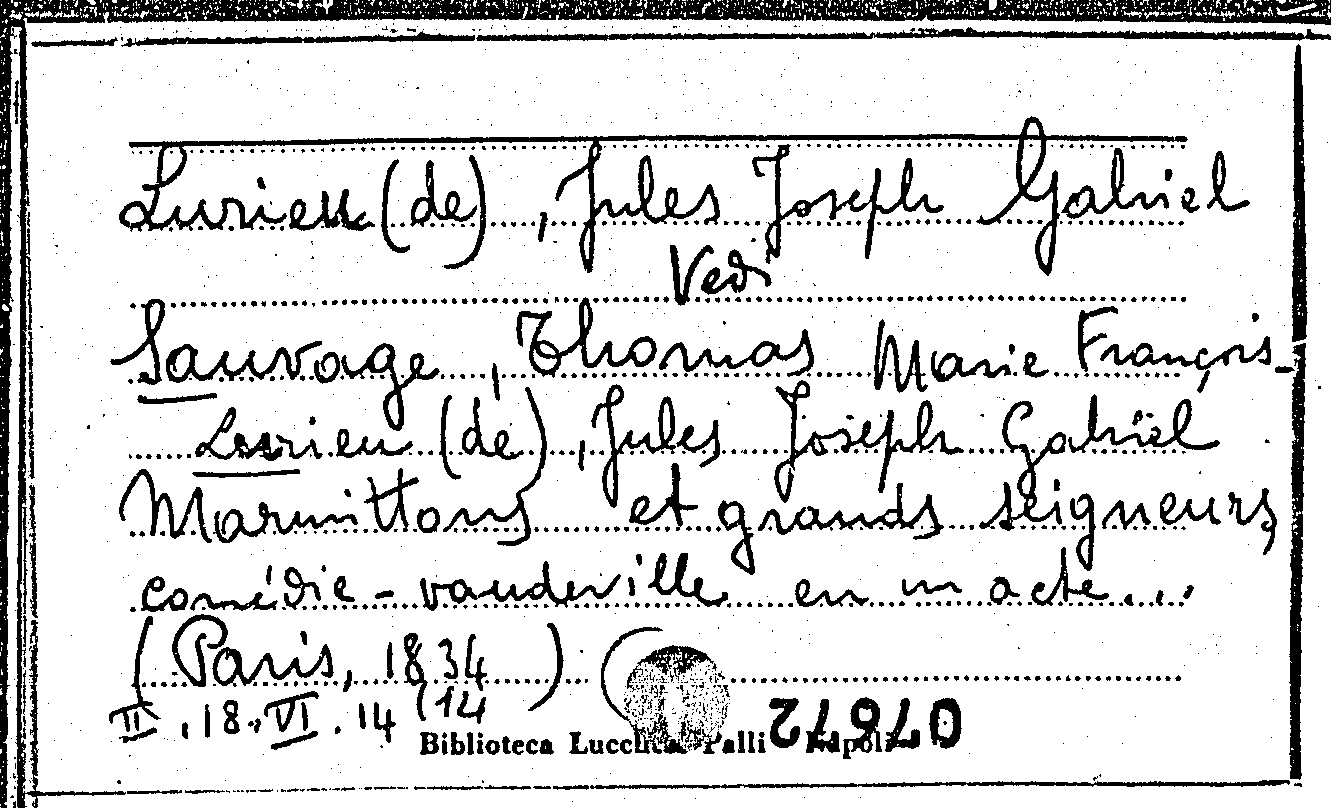 Lurieu (de), Jules Joseph Gabriel
Vedi
Sauvage, Thomas Marie François-
Lurieu (de), Jules Joseph Gabriel
Marmittons et grands seigneurs,
comédie-vaudeville en un acte...
(Paris, 1834)
II.18.VI.14 (14
Biblioteca Lucchesi Palli Napoli
07672